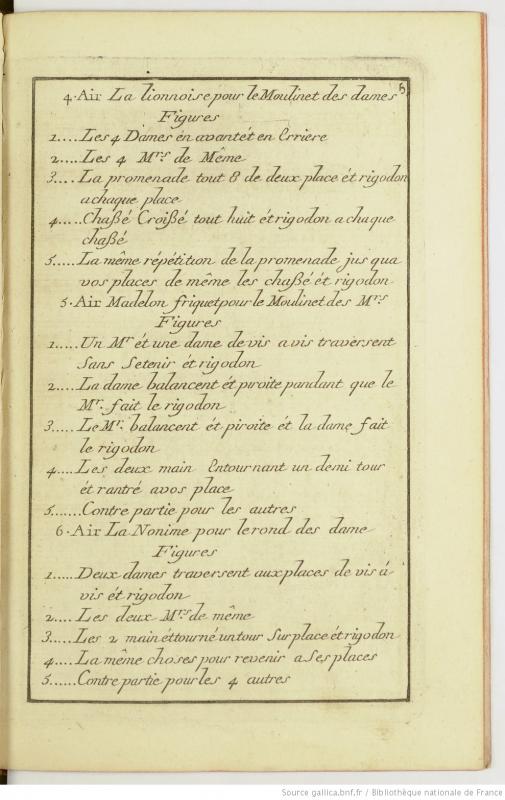 5
4. Air La lionnoise pour le Moulinet des dames
Figures
1.... Les 4 Dames en avant ét en Erriere
2.... Les 4 Mrs de Même
3.... La promenade tout 8 de deux place ét rigodon
a chaque place
4.... Chaßé Croißé tout huit ét rigodon a chaque
chaßé
5..... La même répétition de la promenade jus qua
vos places de même les chaßé ét rigodon
5. Air Madelon friquet pour le Moulinet des Mrs
Figures
1..... Un Mr ét une dame de vis a vis traversent
Sans Setenir ét rigodon
2..... La dame balancent ét piroite pandant que le
Mr. fait le rigodon
3..... Le Mr. balancent ét piroite ét la dame fait
le rigodon
4.... Les deux main Entournant un demi tour
ét rantré a vos place
5...... Contre partie pour les autres
6. Air La Nonime pour le rond des dame
Figures
1..... Deux dames traversent aux places de vis á
vis ét rigodon
2.... Les deux Mrs de même
3.... Les 2 main ét tourné un tour Sur place ét rigodon
4.... La même choses pour revenir a Ses places
5...... Contre partie pour les 4 autres
Source gallica.bnf.fr / Bibliothèque nationale de France